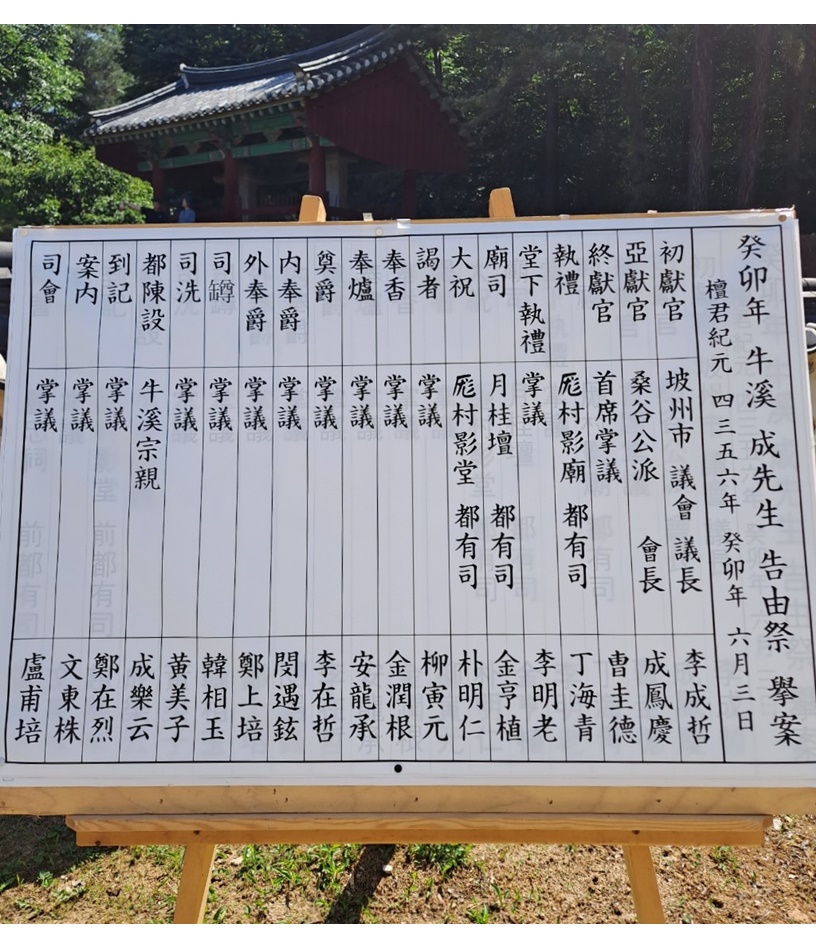 癸卯年 牛溪 成先生 告由祭 擧案
檀君紀元 四三五六年 癸卯年 六月三日
初獻官 坡州市 議會 議長 李成哲
亞獻官 桑谷公派 會長 成鳳慶
終獻官 首席掌議 曺圭德
執禮 厖村影廟 都有司 丁海青
堂下執禮 掌議 李明老
廟司 月桂壇 都有司 金亨植
大祝 厖村影堂 都有司 朴明仁
謁者 掌議 柳寅元
奉香 掌議 金潤根
奉爐 掌議 安龍承
奠爵 掌議 李在哲
内奉爵 掌議 閔遇鉉
外奉爵 掌議 鄭上培
司罇 掌議 韓相玉
司洗 掌議 黄美子
都陳設 牛溪宗親 成樂云
到記 掌議 鄭在烈
案内 掌議 文東株
司會 掌議 盧甫培